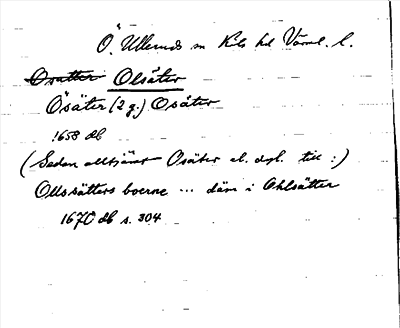 Ö. Ulleruds sn Kils hd Värml. l.
Osätter Olsäter
Ösäter (2 g.) Osäter
1658 db
(Sedan alltjämt Osäter el. dyl. till :)
Ollssätters boerne ... däri i Ohlsätter
1670 db s. 304